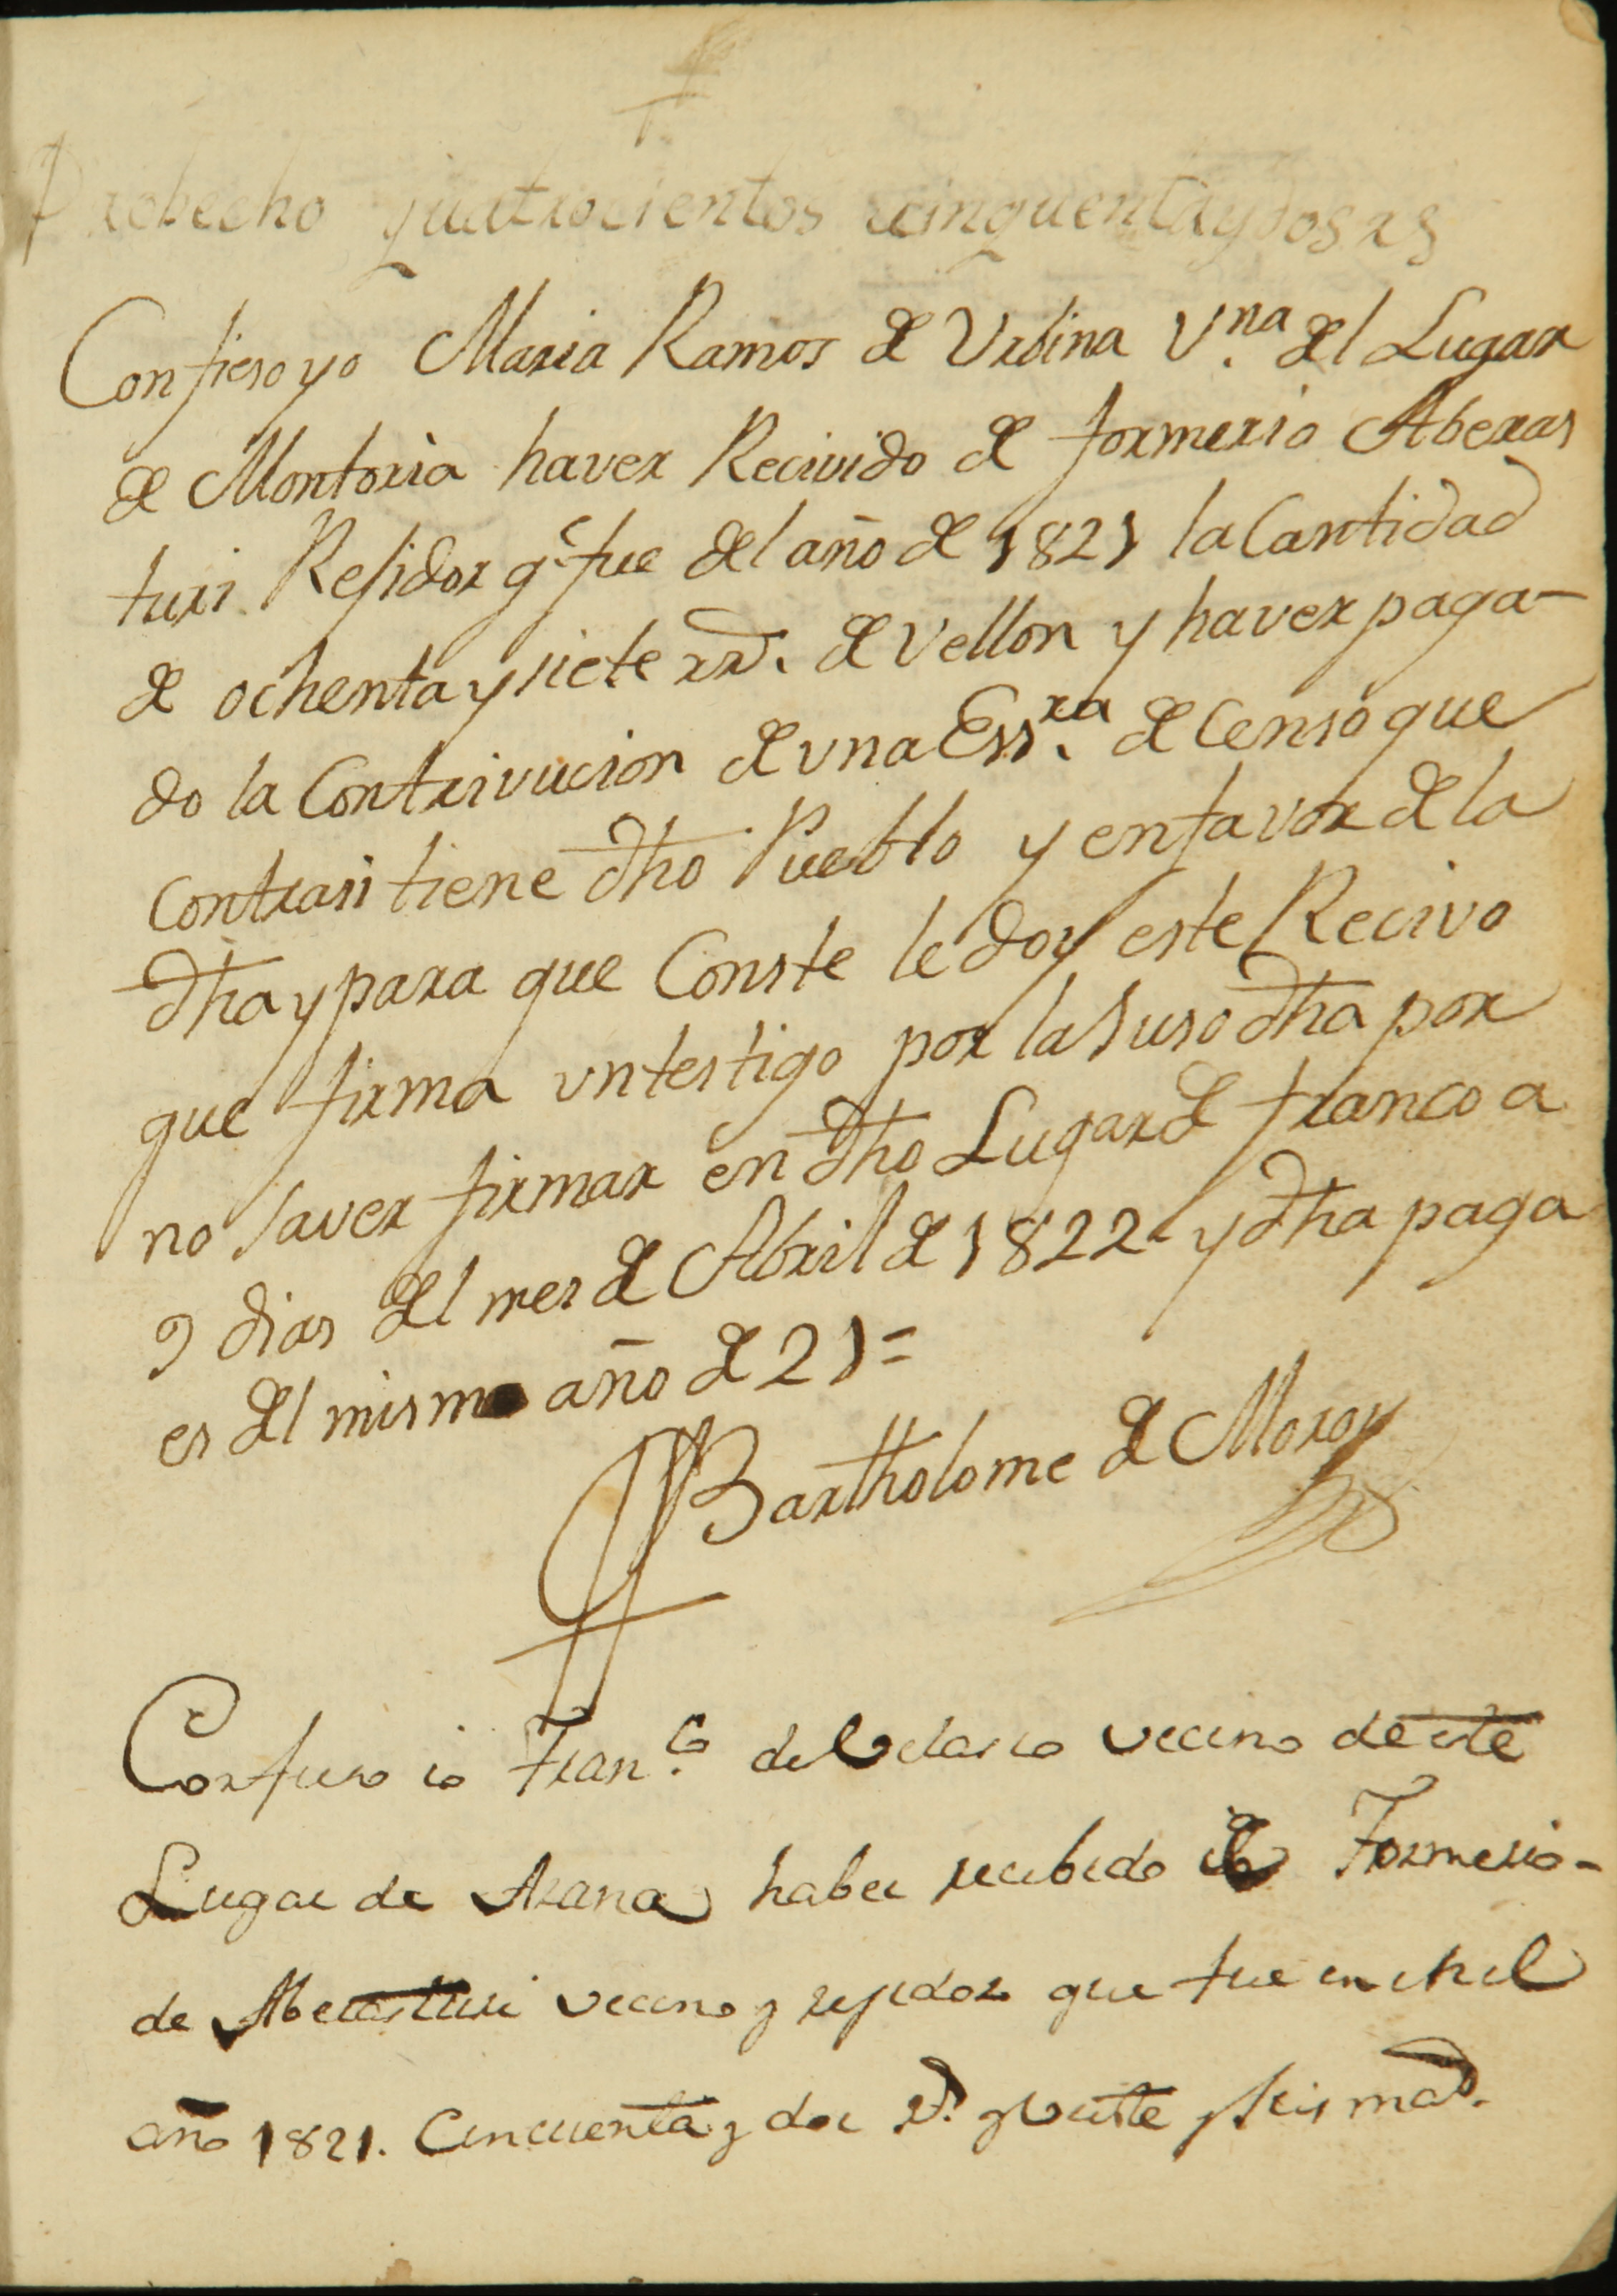 Probecho quatrocientos cinquenta y dos rs
Confieso yo Maria Ramos de Urbina V.na del Lugar
de Montoria haver Recivido de formerio Aberas
turi Residor q.e fue del año de 1821 la Cantidad
de ochenta y siete rr.s de vellon y haver paga-
do la Contrivucion de vna Ess.ra de Censo que
contrasi tiene dho Pueblo y enfavor de la
dha y para que Conste le doy este Recivo
que firma vn testigo por la Suso dha por
no saver firmar en dho Lugar de franco a
9 dias del mes de Abril de 1822 y dha paga
es del mismo año de 21=
Bartholome de Moroy
Confieso io Fran.co de Velasco vecino de este
Lugar de Arana haber recibido de Formerio-
de Aberasturi vecino y rejidor que fue en el
año 1821. Cincuenta y dos r.s y Veinte y seis mad.s